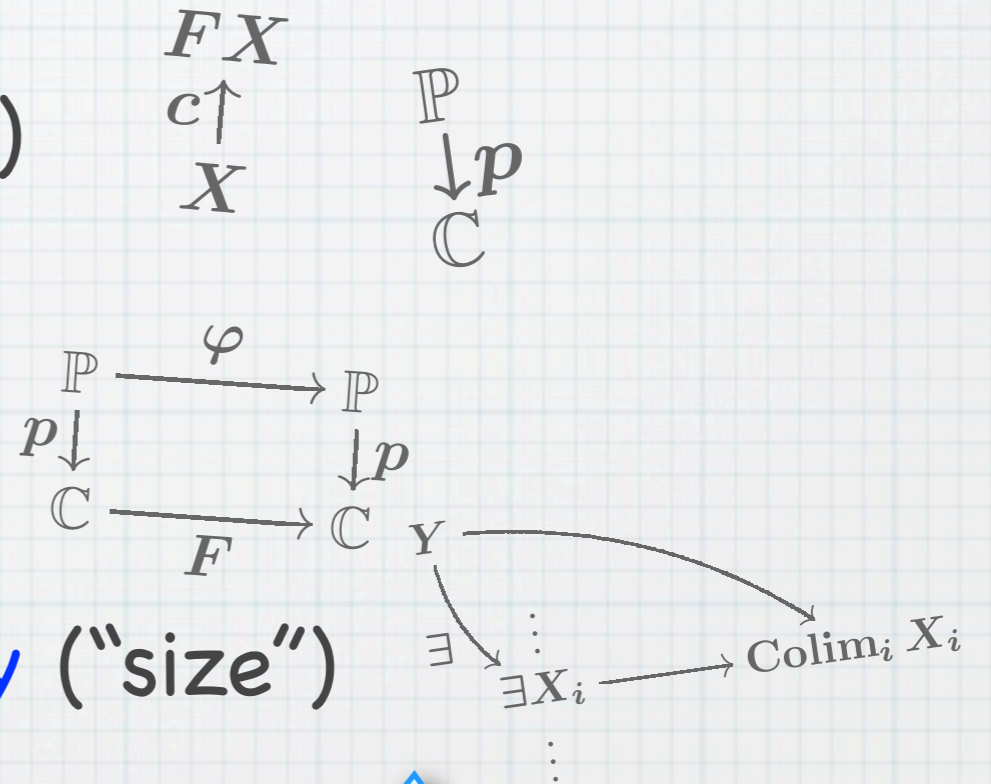 )
FX
c
X
ℙ
p
ℂ
φ
ℙ ℙ
p p
ℂ ℂ
F
Y
∃
⋮
∃X_i
Colim_i X_i
⋮
("size")